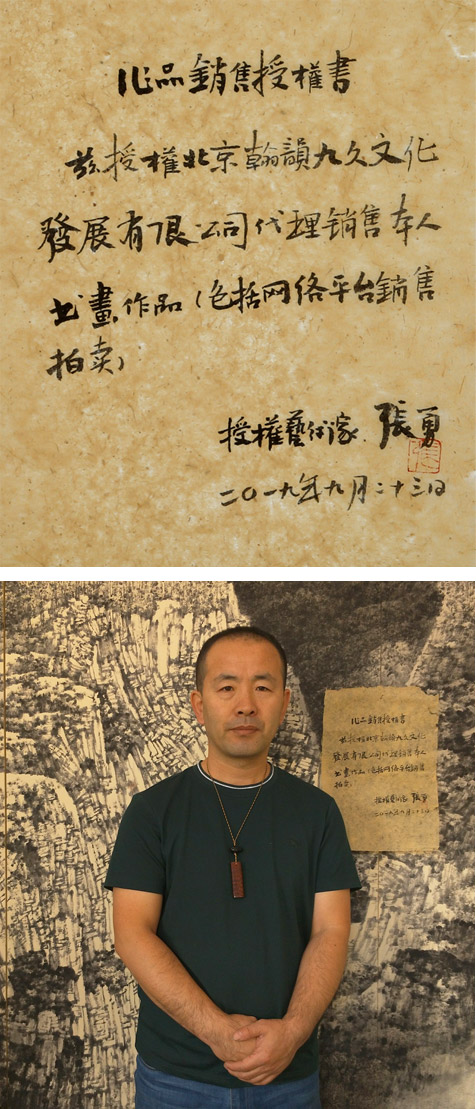 作品銷售授權書
兹授權北京翰韻九久文化
發展有限公司代理销售本人
书畫作品（包括网络平台銷售
拍卖）
授權藝術家 張勇
張
二〇一九年九月二十三日
作品銷售授權書
兹授權北京翰韻九久文化
發展有限公司代理销售本人
书畫作品（包括网络平台銷售
拍卖）
授權藝術家 張勇
二〇一九年九月二十三日